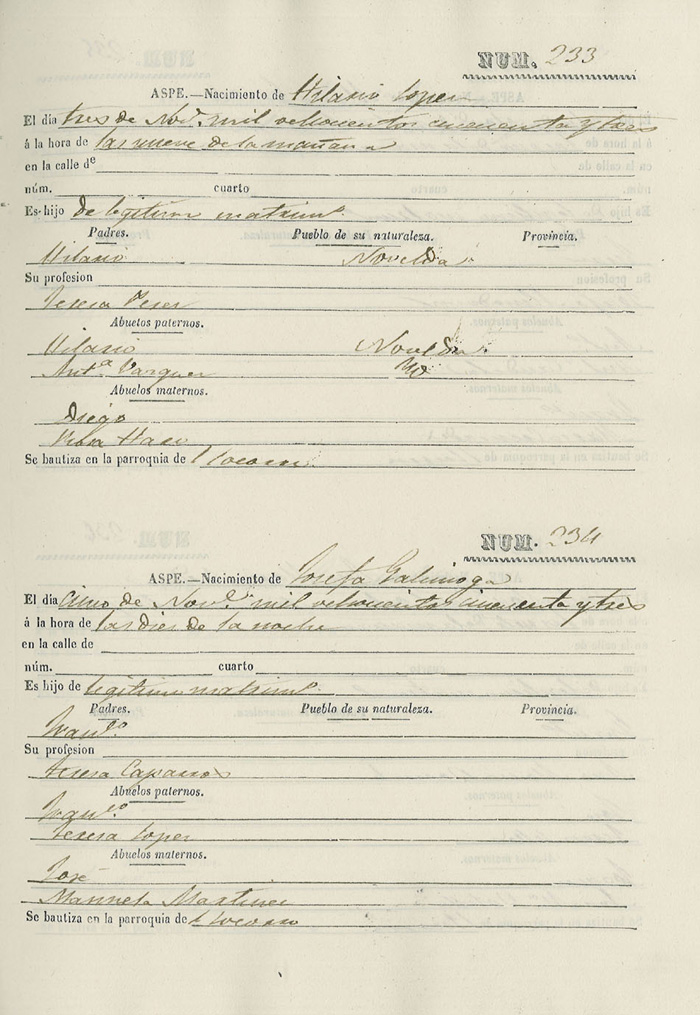 NUM. 233
ASPE.—Nacimiento de Hilario Lopez
El dia tres de Nov.e mil ochocientos cincuenta y tres
á la hora de las nueve de la mañana
en la calle de
núm. cuarto
Es hijo de legitimo matrim.o
Padres. Pueblo de su naturaleza. Provincia.
Hilario Novelda
Su profesion
Teresa Perez
Abuelos paternos.
Hilario Novelda
Ant.a Vazquez
Abuelos maternos.
Diego
Se bautiza en la parroquia de Socorro
NUM. 234
ASPE.—Nacimiento de Josefa Galinoga
El dia cinco de Nov.e mil ochocientos cincuenta y tres
á la hora de las dies de la noche
en la calle de
núm. cuarto
Es hijo de legitimo matrim.o
Padres. Pueblo de su naturaleza. Provincia.
Fran.co
Su profesion
Teresa Caparros
Abuelos paternos.
Fran.co
Teresa Lopez
Abuelos maternos.
José
Manuela Martinez
Se bautiza en la parroquia de Socorro